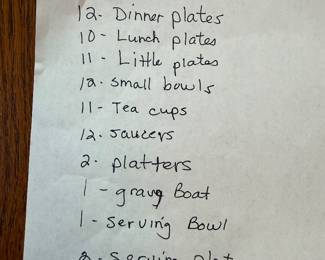 12- Dinner plates
10- Lunch plates
11- Little plates
12. small bowls
11- Tea cups
12. saucers
2. platters
1- gravy Boat
1- serving Bowl
2- serving